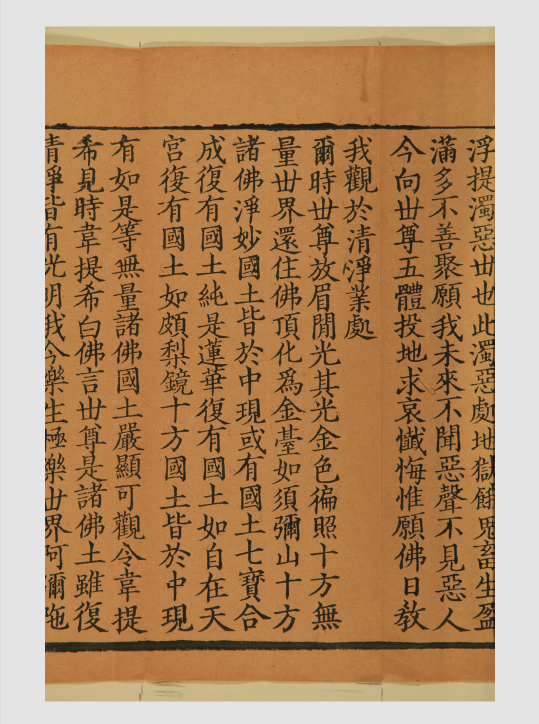 浮提濁惡丗也此濁惡處地獄餓鬼畜生盈
滿多不善聚願我未來不聞惡聲不見惡人
今向丗尊五體投地求哀懺悔惟願佛日敎
我觀於清淨業處
爾時丗尊放眉閒光其光金色徧照十方無
量丗界還住佛頂化爲金䑓如須彌山十方
諸佛淨妙國土皆於中現或有國土七寶合
成復有國土純是蓮華復有國土如自在天
宮復有國土如頗梨鏡十方國土皆於中現
有如是等無量諸佛國土嚴顯可觀令韋提
希見時韋提希白佛言丗尊是諸佛土雖復
清淨皆有光明我今樂生極樂丗界阿彌陁